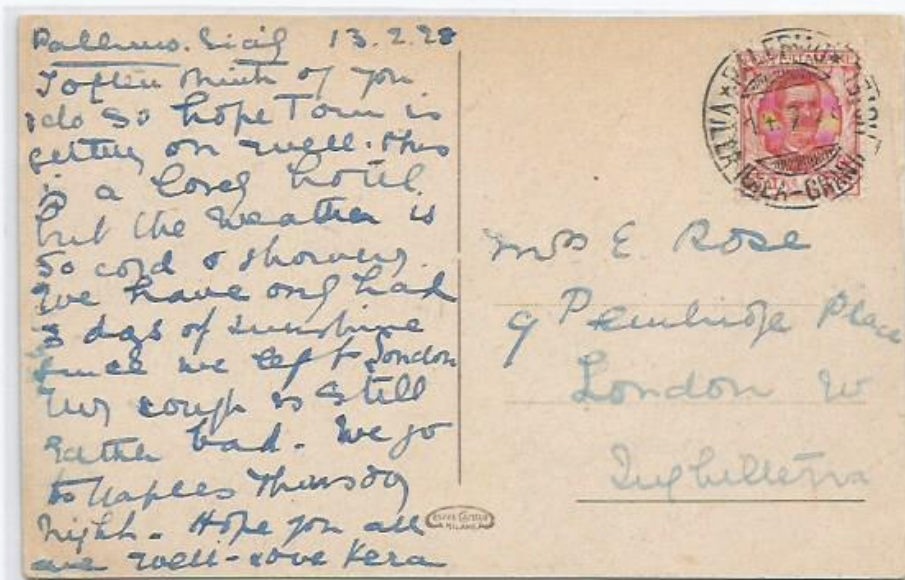 Palermo. Sicily 13.2.28
I often think of you
& do so hope Tom is
getting on well. This
is a lovely hotel
but the weather is
so cold & showery.
We have only had
3 days of sunshine
since we left London
My cough is still
rather bad. We go
to Naples Thursday
night. Hope you all
are well - love Vera
Mrs E. Rose
9 Pembridge Place
London W
Inghilterra
MILANO